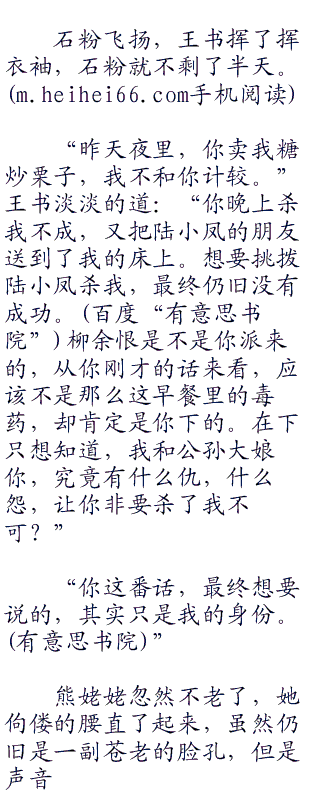 石粉飞扬，王书挥了挥
衣袖，石粉就不剩了半天。
(m.heihei66.com手机阅读)
“昨天夜里，你卖我糖
炒栗子，我不和你计较。”
王书淡淡的道：“你晚上杀
我不成，又把陆小凤的朋友
送到了我的床上。想要挑拨
陆小凤杀我，最终仍旧没有
成功。(百度“有意思书
院”)柳余恨是不是你派来
的，从你刚才的话来看，应
该不是那么这早餐里的毒
药，却肯定是你下的。在下
只想知道，我和公孙大娘
你，究竟有什么仇，什么
怨，让你非要杀了我不
可？”
“你这番话，最终想要
说的，其实只是我的身份。
(有意思书院)”
熊姥姥忽然不老了，她
佝偻的腰直了起来，虽然仍
旧是一副苍老的脸孔，但是
声音